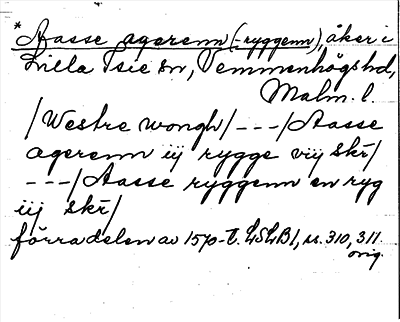 *Aasse agerenn (-ryggenn), åker i
Lilla Isie sn, Vemmenhögs hd,
Malm. l.
/Westre wongh/ ---/Aasse
agerenn iij rygge vij skr/
---/Aasse ryggenn en ryg
iij skr/
förra delen av 1570-t. LSLB1, s. 310, 311.
orig.